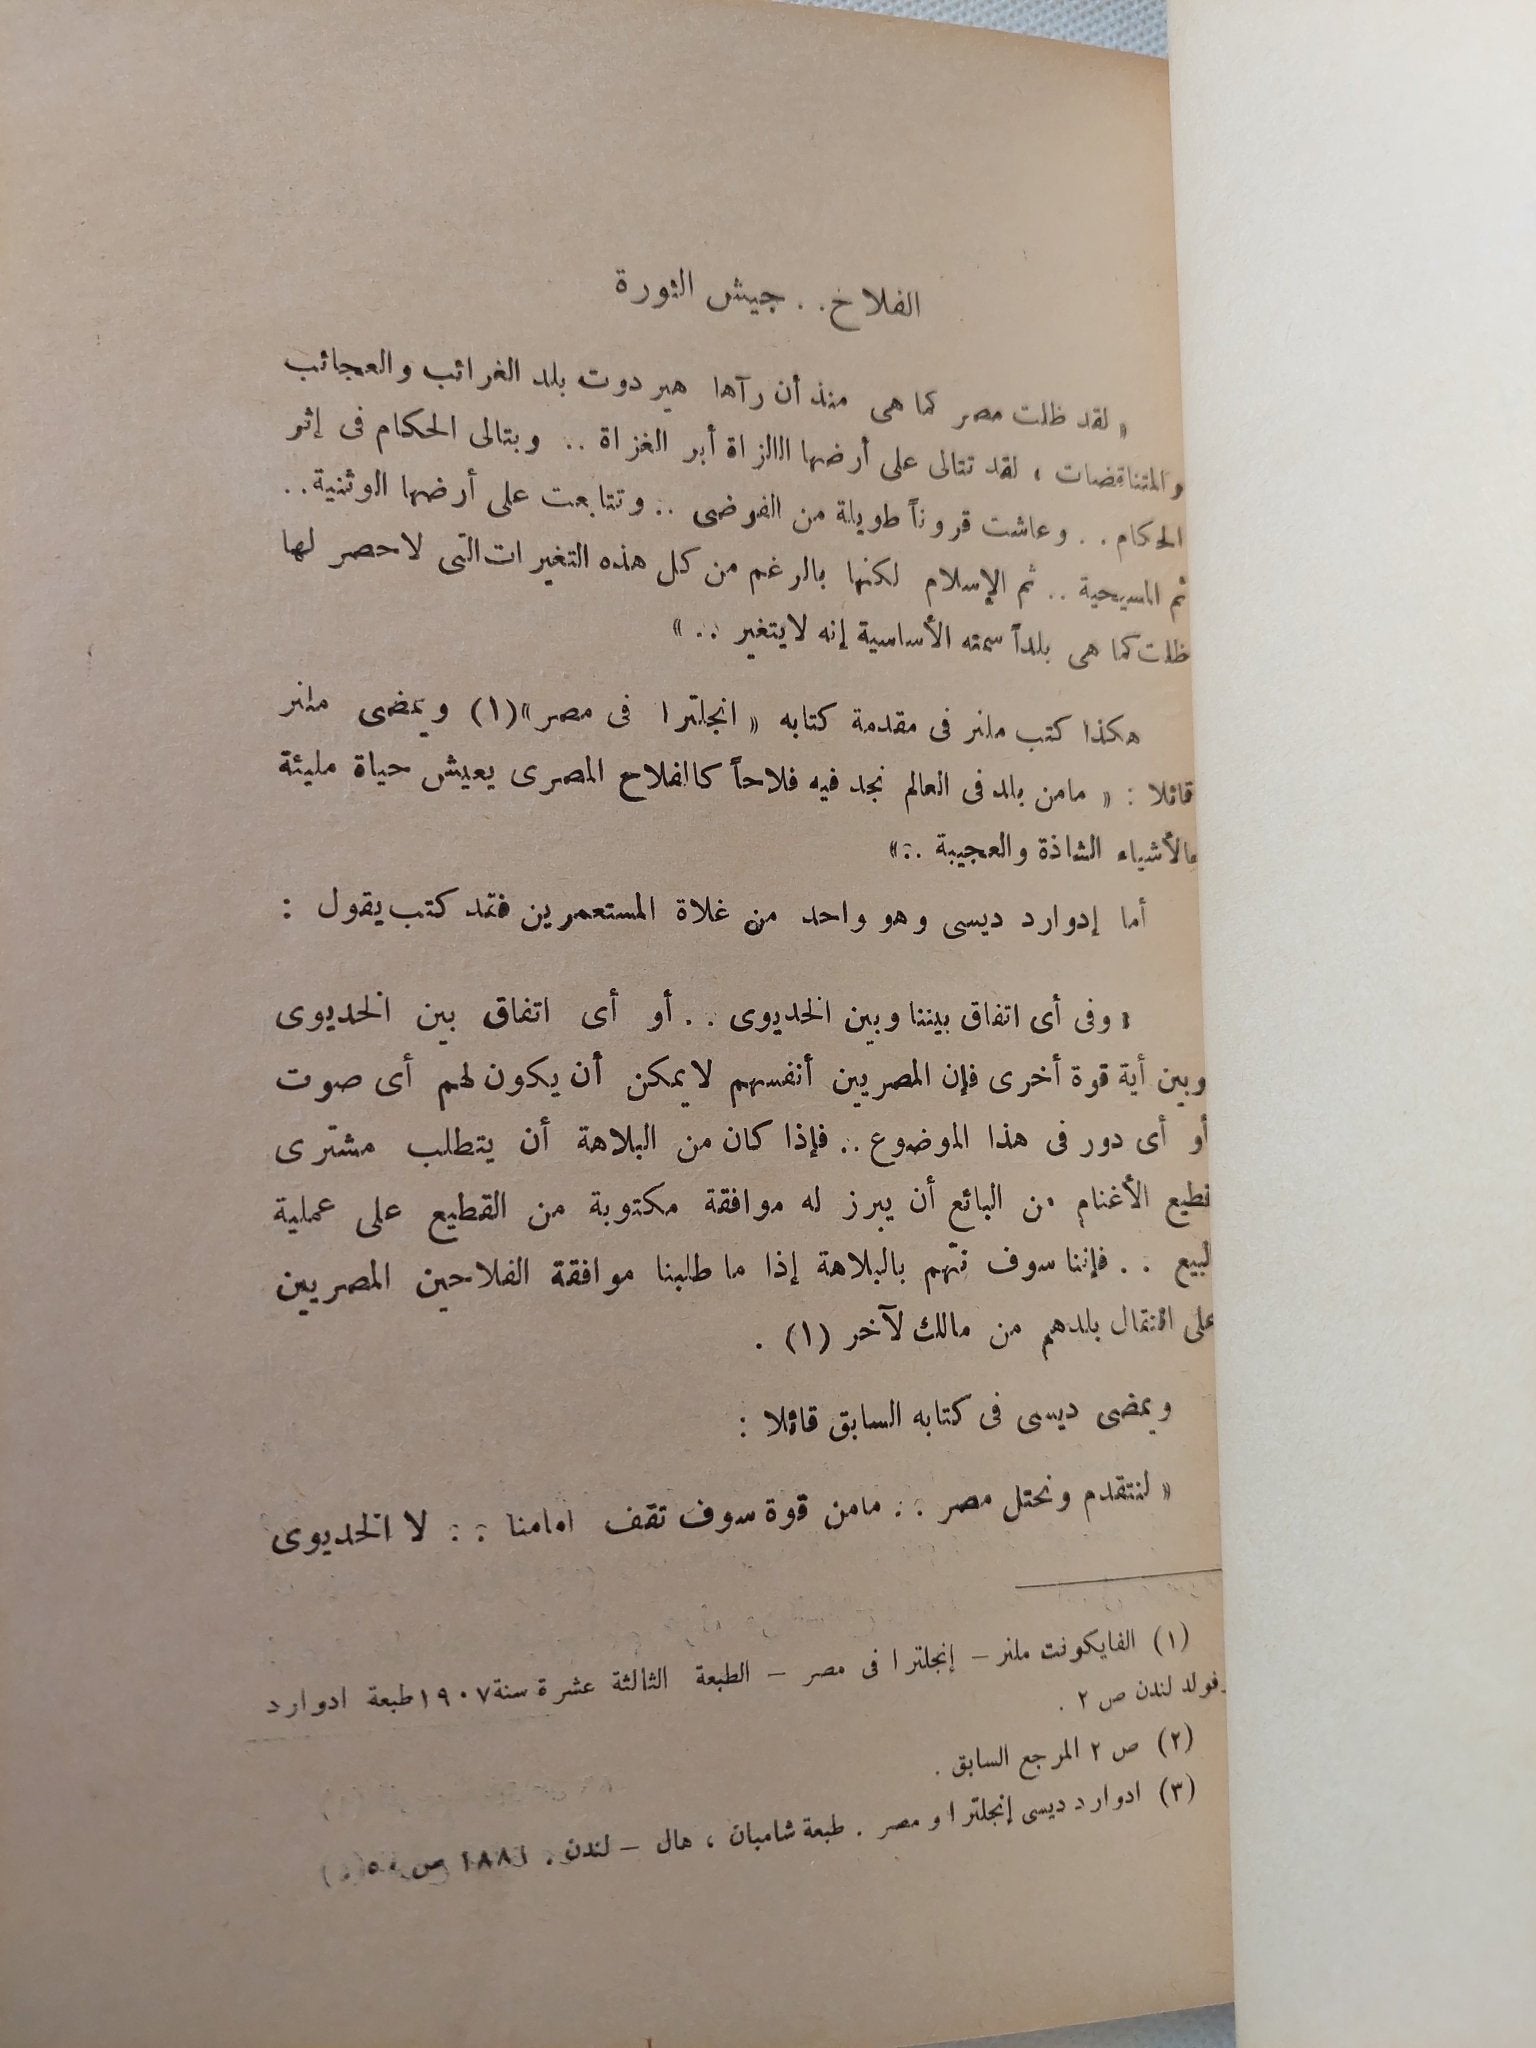 الفلاح . . جيش الثورة
« لقد ظلت مصر كما هى منذ أن رآها هيردوت بلد الغرائب والعجائب
والمتناقضات ، لقد تتالى على أرضها أبر الغزاة .. وبتالى الحكام فى إثر
الحكام . . وعاشت قروناً طويلة من الفوضى .. وتتابعت على أرضها الوثنية . .
ثم المسيحية .. ثم الإسلام لكنها بالرغم من كل هذه التغيرات التى لاحصر لها
ظلت كما هى بلداً سمته الأساسية إنه لايتغير . . »
هكذا كتب ملنر فى مقدمة كتابه « انجلترا فى مصر »(١) ويمضى ملنر
قائلا : « مامن بلد فى العالم نجد فيه فلاحاً كالفلاح المصرى يعيش حياة مليئة
بالأشياء الشاذة والعجيبة .. »
أما إدوارد ديسى وهو واحد من غلاة المستعمرين فقد كتب يقول :
« وفى أى اتفاق بيننا وبين الخديوى . . أو أى اتفاق بين الخديوى
وبين أية قوة أخرى فإن المصريين أنفسهم لايمكن أن يكون لهم أى صوت
أو أى دور فى هذا الموضوع .. فإذا كان من البلاهة أن يتطلب مشترى
قطيع الأغنام من البائع أن يبرز له موافقة مكتوبة من القطيع على عملية
لبيع . . فإننا سوف نتهم بالبلاهة إذا ما طلبنا موافقة الفلاحين المصريين
على انتقال بلدهم من مالك لآخر (١) .
ويمضى ديسى فى كتابه السابق قائلا :
« لنتقدم ونحتل مصر . . مامن قوة سوف تقف امامنا . . لا الخديوى
(١) الفايكونت ملنر – إنجلترا فى مصر – الطبعة الثالثة عشرة سنة ١٩٠٧ طبعة ادوارد
لندن ص ٢ .
(٢) ص ٢ المرجع السابق .
(٣) ادوارد ديسى إنجلترا ومصر . طبعة شامبان ، هال – لندن . ١٨٨١ ص